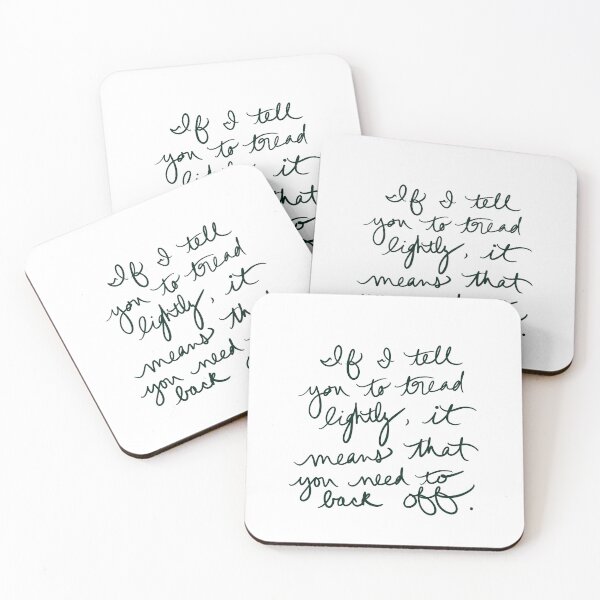 If I tell
you to tread
it
that
to
off
If I tell
you to tread
lightly, it
means that
If I tell
you to tread
lightly, it
means
you need
back
If I tell
you to tread
lightly, it
means that
you need to
back off.